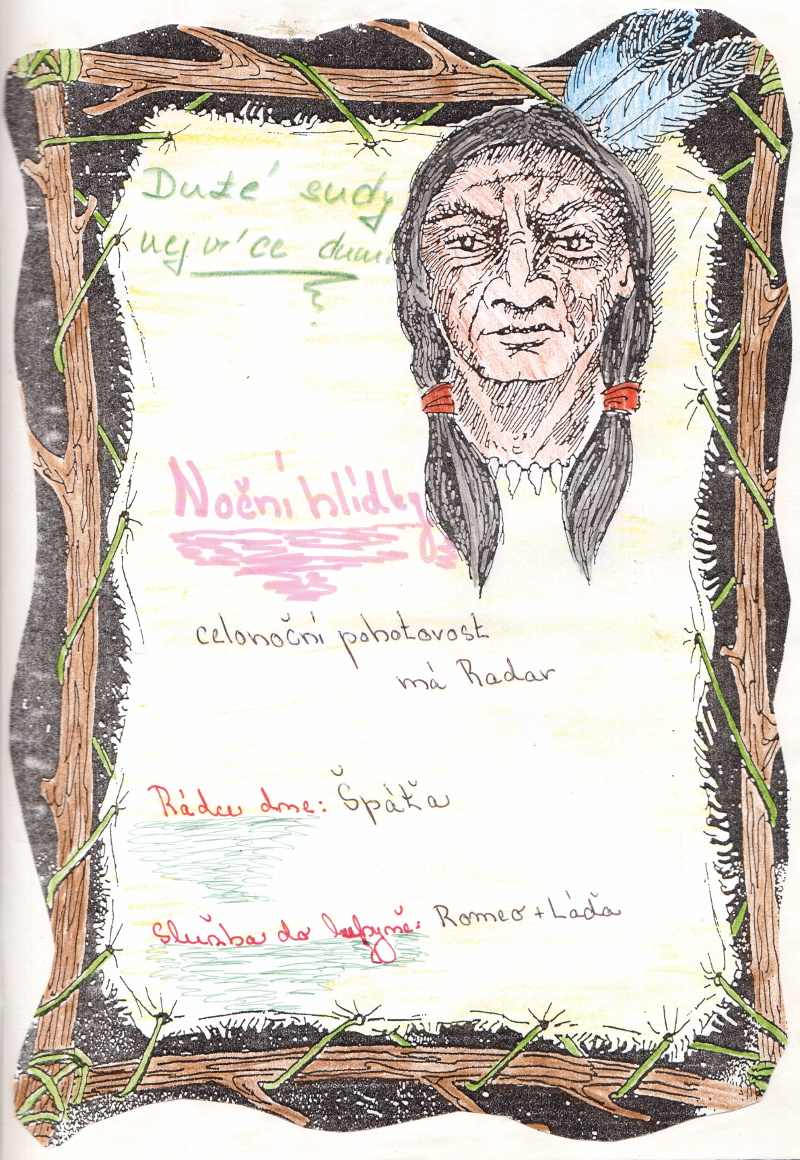 Duté sudy
nejvíce duní.
Noční hlídky
celonoční pohotovost
má Radar
Rádce dne: Špáťa
Služba do kuchyně: Romeo + Láďa